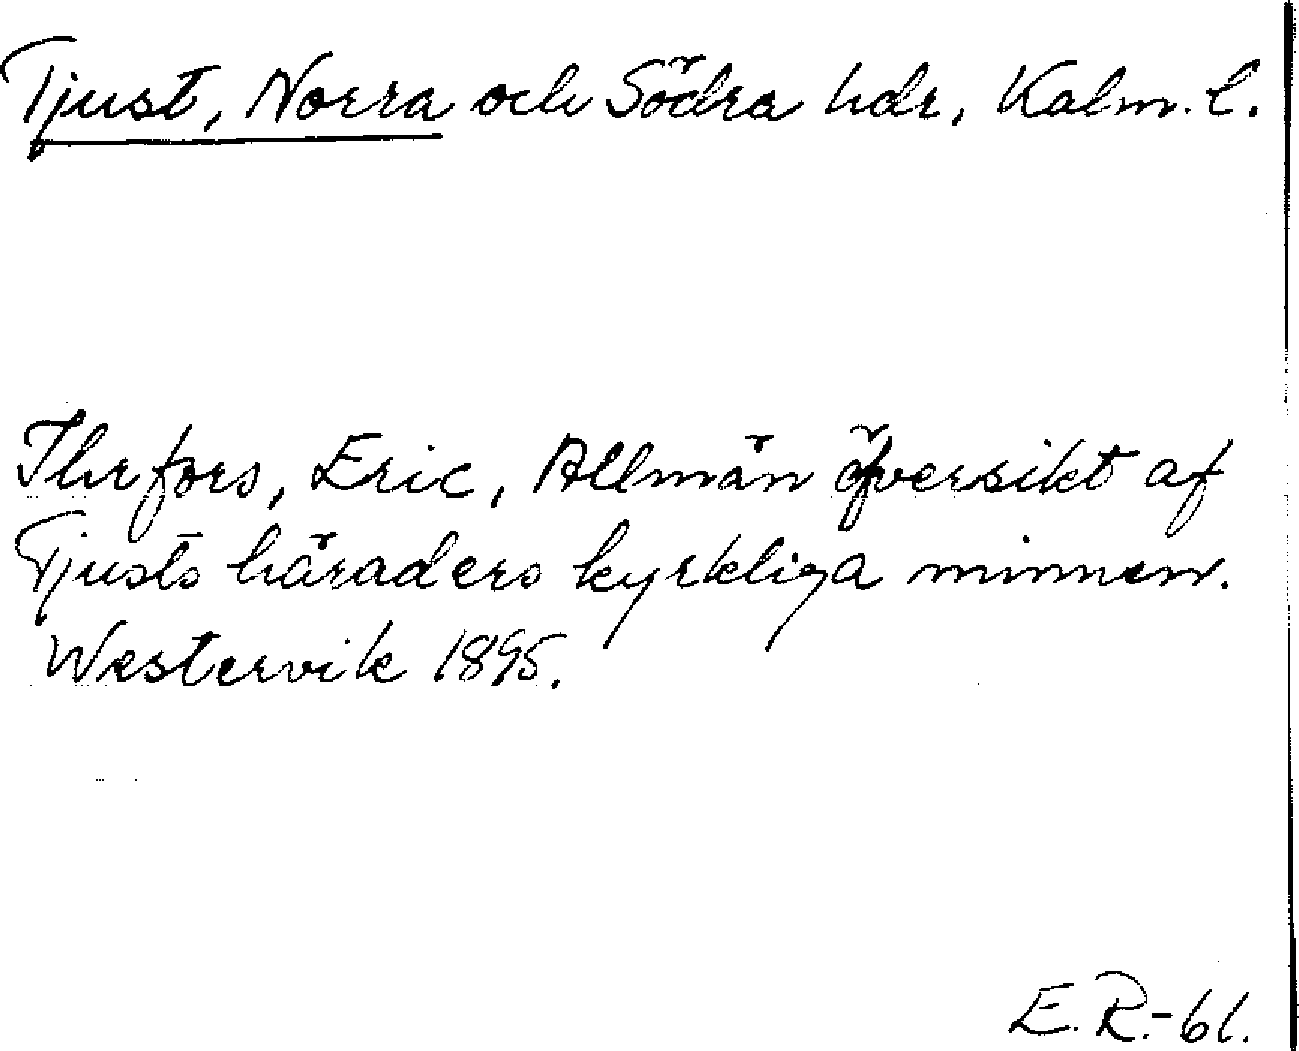 Tjust, Norra och Södra hdr, Kalm. l.
Ihrfors, Eric, Allmän öfversikt af
Tjusts häraders kyrkliga minnen.
Westervik 1895.
E. R.-61.